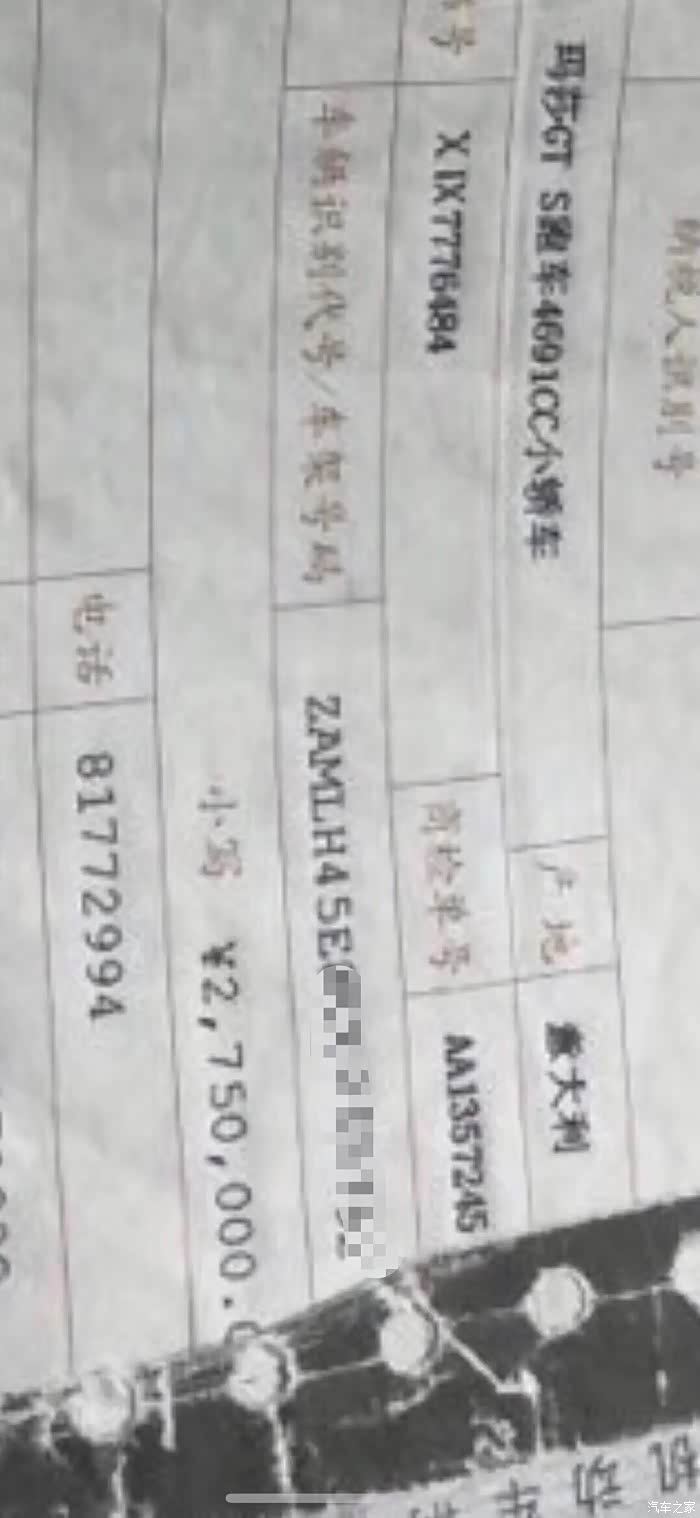 纳税人识别号
玛莎GT S跑车4691CC小轿车 产地 意大利
号 XIX7776484 商检单号 AA1357245
车辆识别代号/车架号码 ZAMLH45E
小写 ¥2,750,000.
电话 81772994
汽车之家